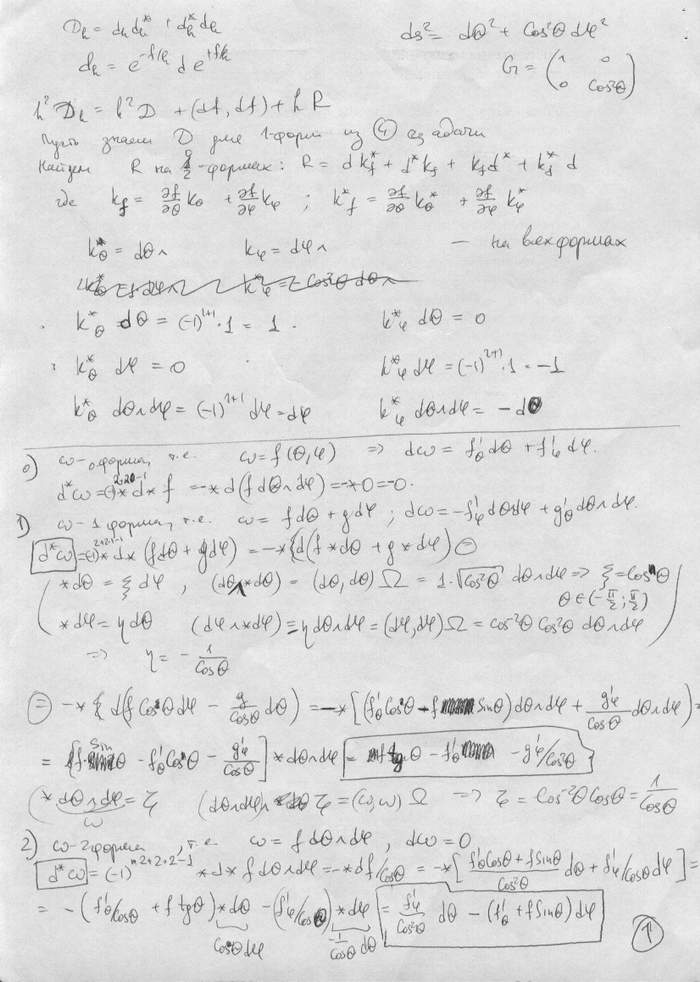 D_h = d_h d_h^* + d_h^* d_h
ds² = dθ² + Cos²θ dφ²
d_h = e^{-f/h} d e^{+f/h}
G = (1 0; 0 Cos²θ)
h² D_h = h² D + (df, df) + h R
Пусть знаем D для 1-форм из ④ задачи
Найдем R на -формах: R = d k_f^* + d^* k_f + k_f d^* + k_f^* d
где k_f = ∂f/∂θ k_θ + ∂f/∂φ k_φ ; k_f^* = ∂f/∂θ k_θ^* + ∂f/∂φ k_φ^*
k_θ = dθ∧ k_φ = dφ∧ — на всех формах
k_θ^* dθ = (-1)^{1+1}·1 = 1. k_φ^* dθ = 0
k_θ^* dφ = 0 k_φ^* dφ = (-1)^{2+1}·1 = -1
k_θ^* dθ∧dφ = (-1)^{1+1} dφ = dφ k_φ^* dθ∧dφ = -dθ
0) ω-0форма, т.е. ω = f(θ,φ) ⇒ dω = f'_θ dθ + f'_φ dφ.
d^*ω = * d * f = -* d(f dθ∧dφ) = -*0 = -0.
1) ω-1форма, т.е. ω = f dθ + g dφ ; dω = -f'_φ dθdφ + g'_θ dθ∧dφ.
d^*ω = * d * (f dθ + g dφ) = -*{d(f * dθ + g * dφ)} ⊜
*dθ = ξ dφ , (dθ∧*dθ) = (dθ, dθ) Ω = 1·√Cos²θ dθ∧dφ ⇒ ξ = Cosθ
θ ∈ (-π/2; π/2)
*dφ = η dθ (dφ∧*dφ) = η dθ∧dφ = (dφ, dφ) Ω = Cos⁻²θ Cos²θ dθ∧dφ
⇒ η = - 1/Cosθ
⊜ -*{d(f Cosθ dφ - g/Cosθ dθ) = -*[(f'_θ Cosθ - f Sinθ) dθ∧dφ + g'_φ/Cosθ dθ∧dφ) =
= [f Sinθ - f'_θ Cosθ - g'_φ/Cosθ] * dθ∧dφ = f tgθ - f'_θ - g'_φ/Cos²θ
(* dθ∧dφ = ζ (dθ∧dφ)∧ ζ = (ω,ω) Ω ⇒ ζ = Cos⁻²θ Cosθ = 1/Cosθ
ω
2) ω-2форма, т.е. ω = f dθ∧dφ , dω = 0
d^*ω = (-1)^{2+2+2-1} * d * f dθ∧dφ = -* d f/Cosθ = -*[f'_θ Cosθ + f Sinθ/Cos²θ dθ + f'_φ/Cosθ dφ] =
= -(f'_θ/Cosθ + f tgθ) *dθ - (f'_φ/Cosθ) *dφ = f'_φ/Cos²θ dθ - (f'_θ + f Sinθ) dφ
Cosθ dφ -1/Cosθ dθ
①